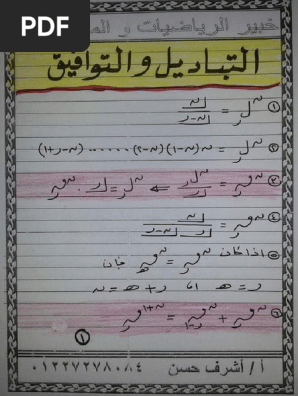 PDF
خبير الرياضيات و
التباديل والتوافيق
① ⁿلر = ⌊ن / ⌊ن-ر
② ⁿلر = ن(ن-١)(ن-٢)......(ن-ر+١)
③ ⁿقر = ⁿلر / ⌊ر ⇐ ⁿلر = ⌊ر . ⁿقر
④ ⁿقر = ⌊ن / ⌊ر ⌊ن-ر
⑤ اذا كان ⁿقر = ⁿقھ فإن
ر = ھ أ، ر + ھ = ن
⑥ ⁿقر + ⁿقر-١ = ⁿ⁺¹قر
①
أ / أشرف حسن ٠١٢٢٧٢٧٨٠٨٤